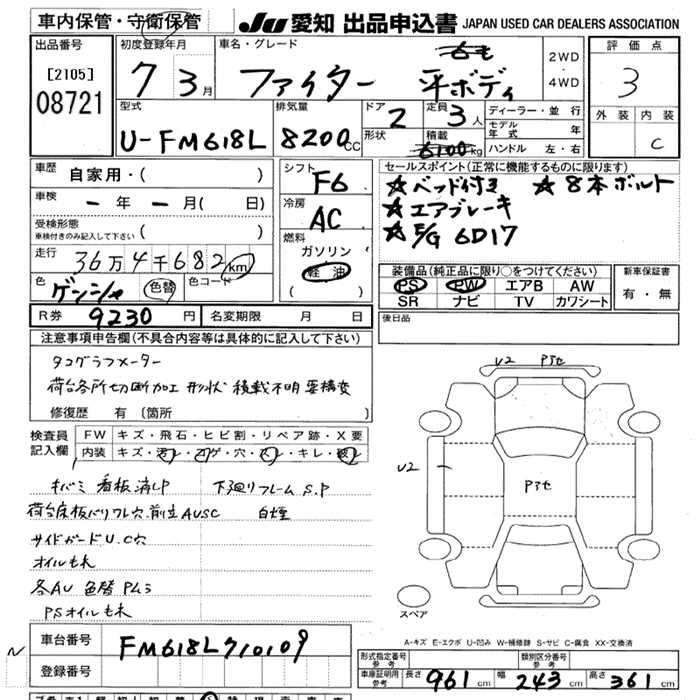 車内保管・守衛保管 JU 愛知 出品申込書 JAPAN USED CAR DEALERS ASSOCIATION
出品番号 初度登録年月 車名・グレード 評価点
[2105] 7 3月 ファイター 平ボディ 2WD・4WD 3
08721
型式 排気量 ドア 定員 ディーラー・並行 外装 内装
U-FM618L 8200CC 2 3人 モデル年式 年 C
形状 積載 6100kg ハンドル 左・右
車歴 自家用・( ) シフト F6 セールスポイント(正常に機能するものに限ります)
車検 ー年ー月( 日) 冷房 AC ☆ベッド付き ☆8本ボルト
受検形態 ☆エアブレーキ
車検付きのみ記入して下さい ( ) 燃料 ☆E/G 6D17
走行 36万4千682km ガソリン
色 ゲンシャ 色替 色コード 軽油 ( )
装備品(純正品に限り○をつけてください) 新車保証書
PS PW エアB AW 有・無
SR ナビ TV カワシート
R券 9230円 名変期限 月 日 後日品
注意事項申告欄(不具合内容等は具体的に記入して下さい)
タコグラフメーター
荷台各所切断加工 形状 積載不明 要構変
修復歴 有 〔箇所 〕
検査員記入欄 FW キズ・飛石・ヒビ割・リペア跡・X要
内装 キズ・汚レ・コゲ・穴・スレ・キレ・破レ
キバミ 看板済LP 下廻りフレームS.P
荷台床板バリフレ穴 前立AUSC 白煙
サイドガードU.C穴
オイルもれ
各AU 色替Pムラ
PSオイルもれ
U2 Pうせ
U2 Pうせ
スペア
A-キズ E-エクボ U-凹み W-補修跡 S-サビ C-腐食 XX-交換済
車台番号 FM618L710109
登録番号
型式指定番号参考 類別区分番号参考
車庫証明用参考 長さ 961cm 幅 243cm 高さ 361cm